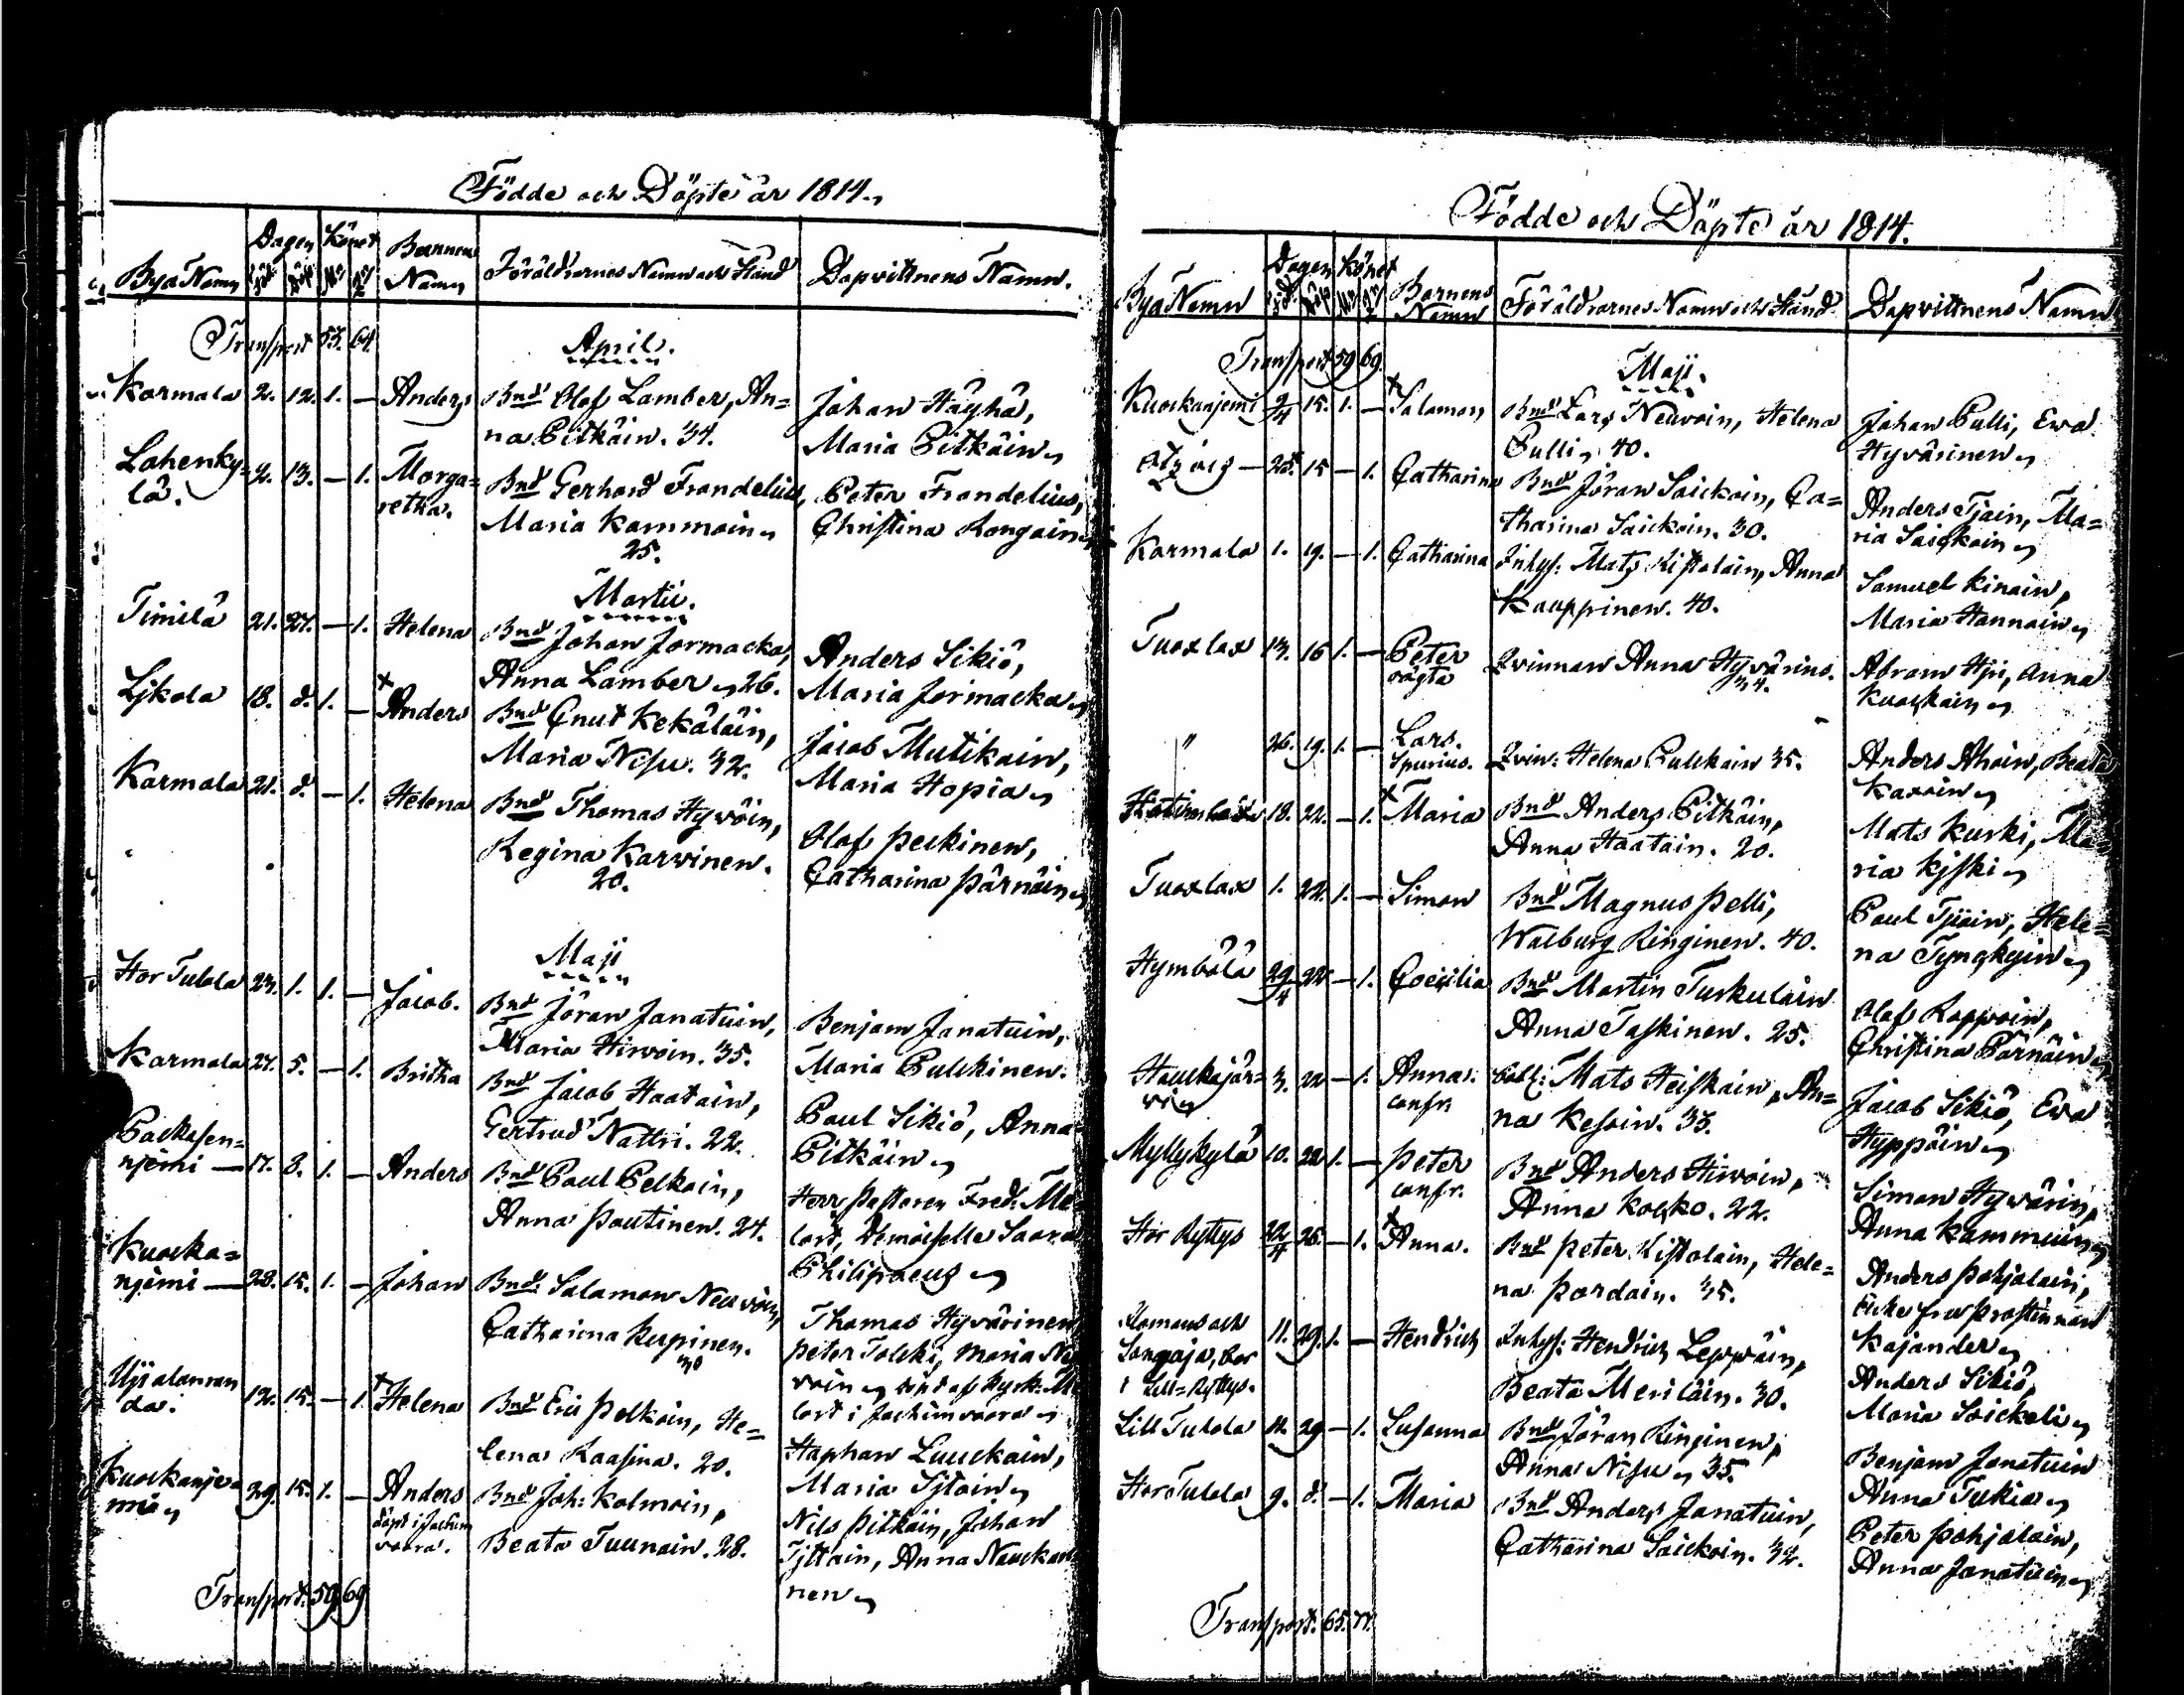 Födde och Döpte år 1814.
Bya Namn Dagen Född Döpt Könet Mk Qk Barnens Namn Föräldrarnes Namn och Stånd Dopvittnens Namn.
Transport 53. 64.
April.
Karmala 2. 12. 1. — Anders Bnd Olof Lamber, An=
na Pitkäin. 34. Johan Häyhä,
Maria Pitkäin
Lahenky=
lä. 2. 13. — 1. Marga=
retha. Bnd Gerhard Frandelius,
Maria Kammoin
25. Peter Frandelius,
Christina Rongain
Martii.
Timilä 21. 27. — 1. Helena Bnd Johan Jormacka,
Anna Lamber 26. Anders Sikiö,
Maria Jormacka
Ljkola 18. d. 1. — Anders Bnd Cnut Kekäläin,
Maria Nisu. 32. Jacob Mutikain,
Maria Hopia
Karmala 21. d. — 1. Helena Bnd Thomas Hyvöin,
Regina Karvinen.
20. Olof Peckinen,
Catharina Pärnäin
Maji
Stor Tulola 23. 1. 1. — Jacob. Bnd Jöran Janatuin,
Maria Hirvoin. 35. Benjam Janatuin,
Maria Pulckinen.
Karmala 27. 5. — 1. Britha Bnd Jacob Haatain,
Gertrud Nattri. 22. Paul Sikiö, Anna
Pitkäin
Packasen=
njemi — 17. 8. 1. — Anders Bnd Paul Pelkoin,
Anna Poutinen. 24. Herr Pastoren Fred: Me
lart, Demoiselle Saara
Philipaeus
Kuocka=
njemi — 28. 15. 1. — Johan Bnd. Salomon Neuvoin,
Catharina Kerpinen.
30 Thomas Hyvärinen
Peter Tolcki, Maria Ne
voin döpt af Kyrk: M
lart i Jachimvaara
Ujialanran
da. 12. 15. — 1. Helena Bnd Eric Pelkoin, He=
lena Raasina. 20. Staphan Luuckain,
Maria Sjtoin
Kuockanje=
mi 29. 15. 1. — Anders
döpt i Jachim
vaara. Bnd Joh: Kolmoin,
Beata Tuunain. 28. Nils Pitkäin, Johan
Tjttain, Anna Nauckari
nen
Transport. 59. 69
Födde och Döpte år 1814.
Bya Namn Dagen Född Döpt Könet Mk Qk Barnens Namn Föräldrarnes Namn och Stånd Dopvittnens Namn
Transport 59 69.
Maji.
Kuockanjemi 2/4 15. 1. — Salomon Bnd Lars Neuvoin, Helena
Pulli 40. Johan Pulli, Ewa
Hyvärinen
— 15 — 1. Catharina Bnd Jöran Saickoin, Ca=
tharina Saickoin. 30. Anders Tjain, Ma=
ria Saickoin
Karmala 1. 19. — 1. Catharina Inhys: Mats Ristolain, Anna
Kauppinen. 40. Samuel Kinain,
Maria Hannoin
Tuoxlax 13. 16 1. — Peter
oägta Qvinnan Anna Hyvärin.
34. Abram Hji, Anna
Kuockain
" 26. 19. 1. — Lars.
Spurius. Qvin: Helena Pulckain 35. Anders Ahoin, Beata
Kaxoin
18. 22. — 1. Maria Bnd Anders Pitkäin,
Anna Haatain. 20. Mats Kurki, Ma=
ria Kjski
Tuoxlax 1. 22. 1. — Simon Bnd Magnus Pelli,
Walburg Ringinen. 40. Paul Tjiain, Hele=
na Tynckyin
Hymbölä 29/4 22 — 1. Coecilia Bnd Martin Turkulain
Anna Taskinen. 25. Olof Rapvoin,
Christina Pärnäin
Hauckajär=
vi 3. 22 — 1. Anna.
confr. Mats Heiskain, An=
na Kesoin. 33. Jacob Sikiö, Ewa
Hyppöin
Myllykylä 10. 22 1. — Peter
confr. Bnd Anders Hirvoin,
Anna Kocko. 22. Simon Hyvärin,
Anna Kammuin
Stor Ryttys 22/4 26. — 1. Anna. Bnd Peter Ristolain, Hele=
na Pardain. 35. Anders Pohjalain,
Encke fru Prostinnan
Kajander
Romans och
Sangaja, bor
i Lill=Ryttys. 11. 29. 1. — Hendrich Inhys: Hendrich Leppäin,
Beata Meriläin. 30. Anders Sikiö,
Maria Soickeli
Lill Tulola 11. 29 — 1. Susanna Bnd Jöran Ringinen,
Anna Nisu 35. Benjam Janatuin
Anna Tukia
Stor Tulola 9. d. — 1. Maria Bnd Anders Janatuin,
Catharina Saickoin. 32. Peter Pohjalain,
Anna Janatuin
Transport. 65. 77.